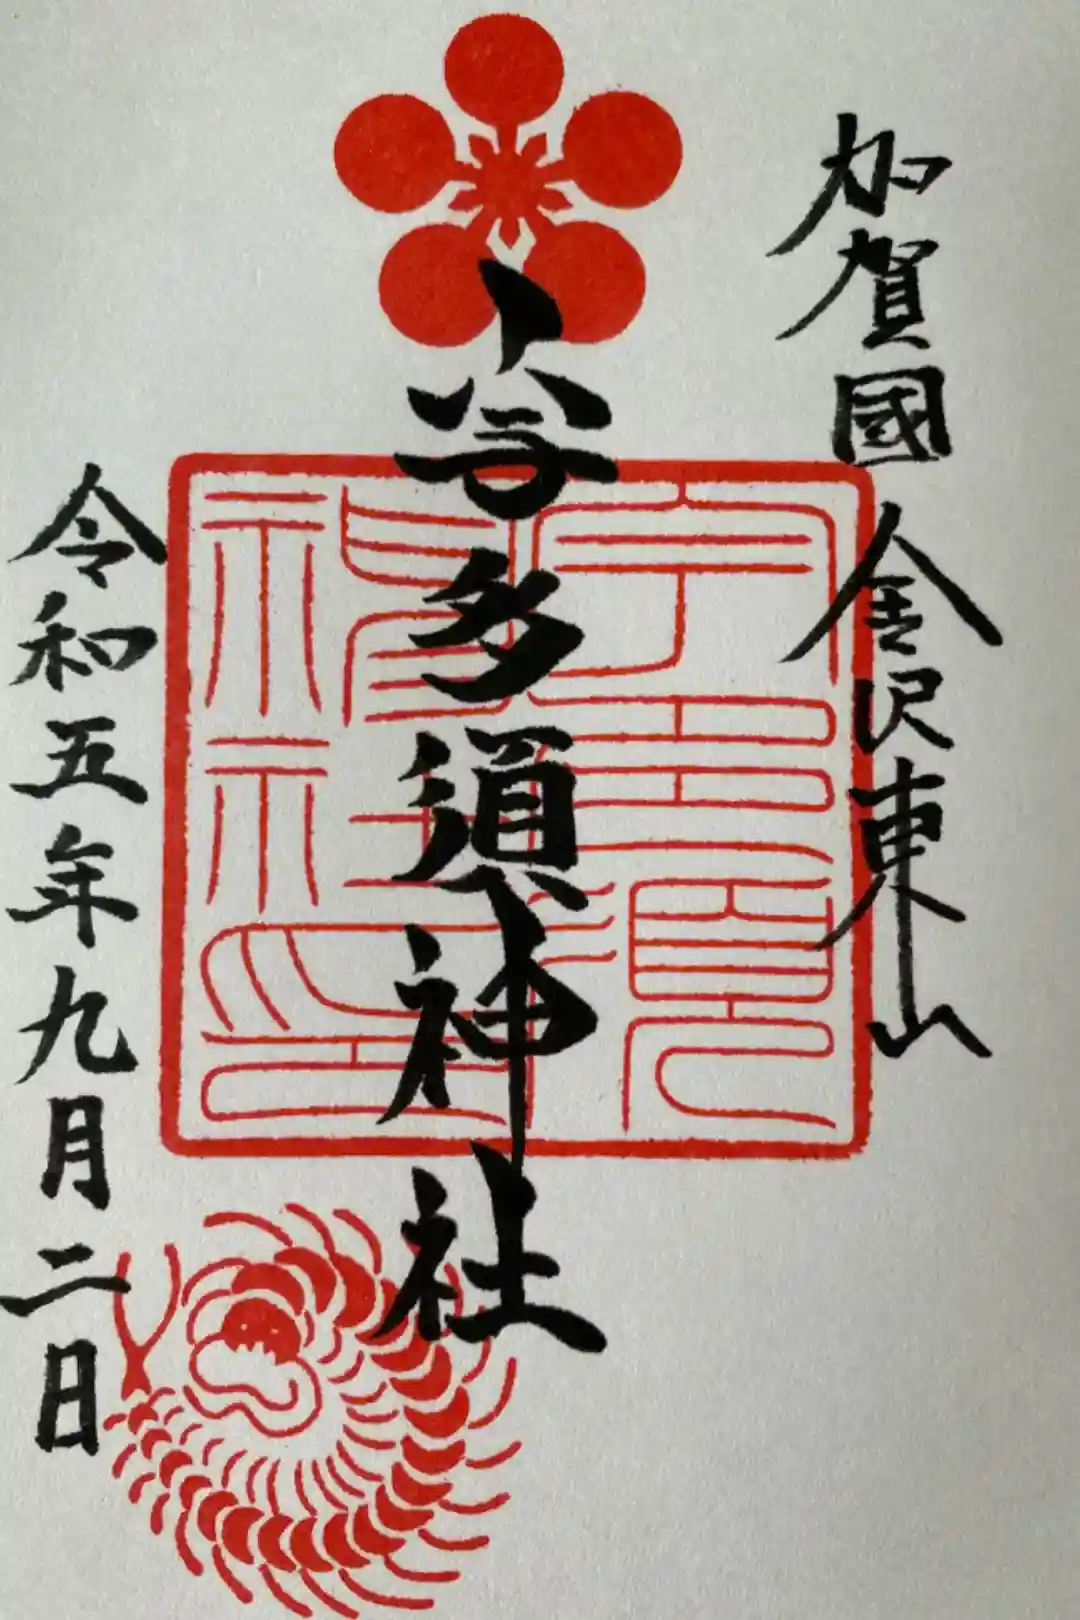 加賀國 金沢東山
宇多須神社
宇多須神社印
令和五年九月二日